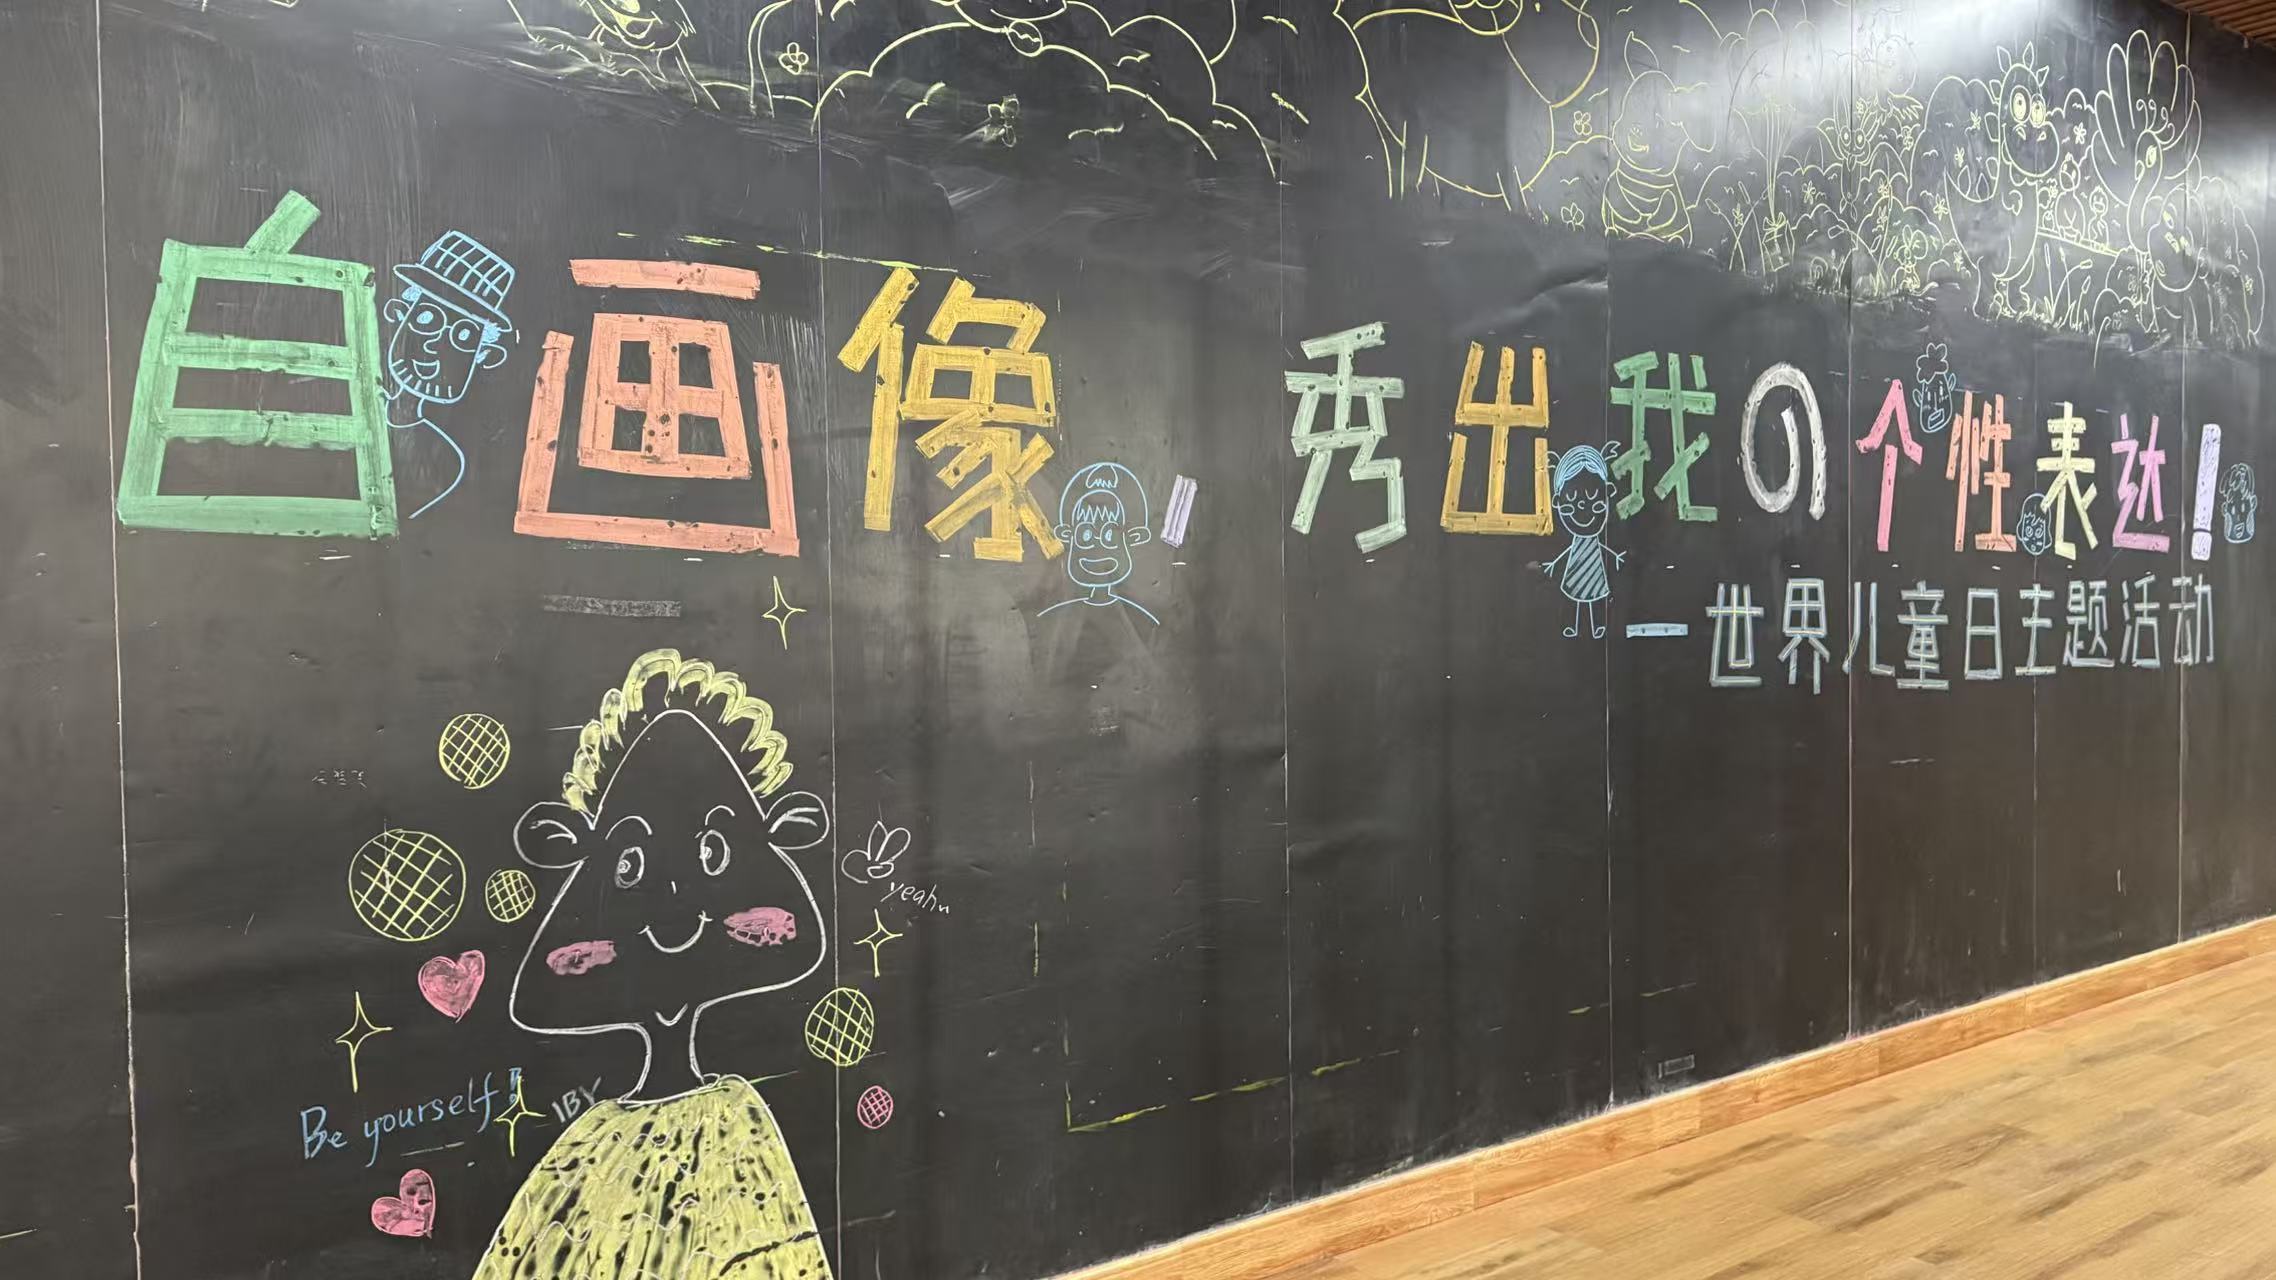 自画像，秀出我の个性表达！
—世界儿童日主题活动
yeah~
Be yourself!